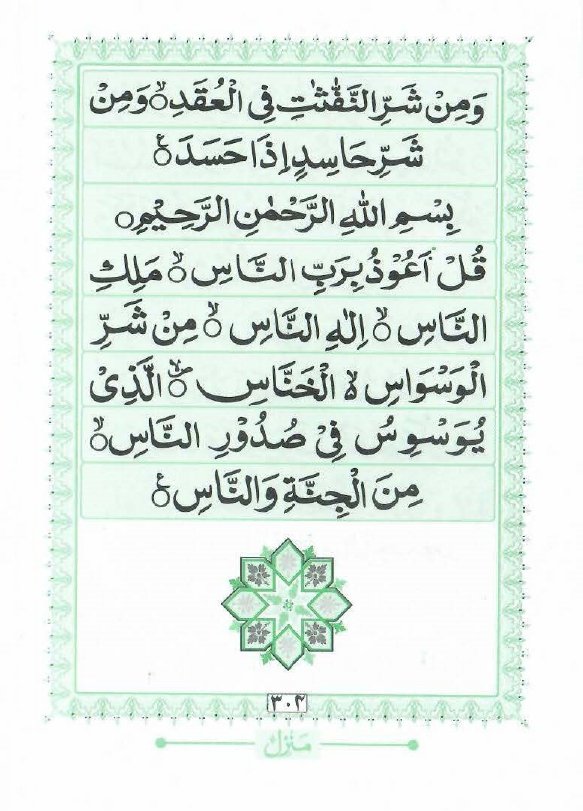 وَمِنْ شَرِّ النَّفّٰثٰتِ فِی الْعُقَدِ ۙ وَمِنْ
شَرِّ حَاسِدٍ اِذَا حَسَدَ ۠
بِسْمِ اللّٰهِ الرَّحْمٰنِ الرَّحِیْمِ
قُلْ اَعُوْذُ بِرَبِّ النَّاسِ ۙ مَلِكِ
النَّاسِ ۙ اِلٰهِ النَّاسِ ۙ مِنْ شَرِّ
الْوَسْوَاسِ ۙ الْخَنَّاسِ ۪ۙ الَّذِیْ
یُوَسْوِسُ فِیْ صُدُوْرِ النَّاسِ ۙ
مِنَ الْجِنَّةِ وَالنَّاسِ ۠
۳۰۴
منزل